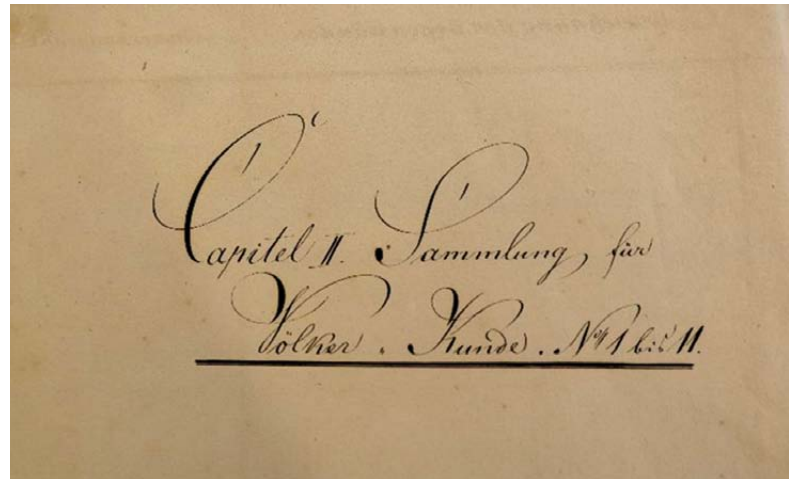 Capitel II. Sammlung für
Völker. Kunde. No 1 bis 11.